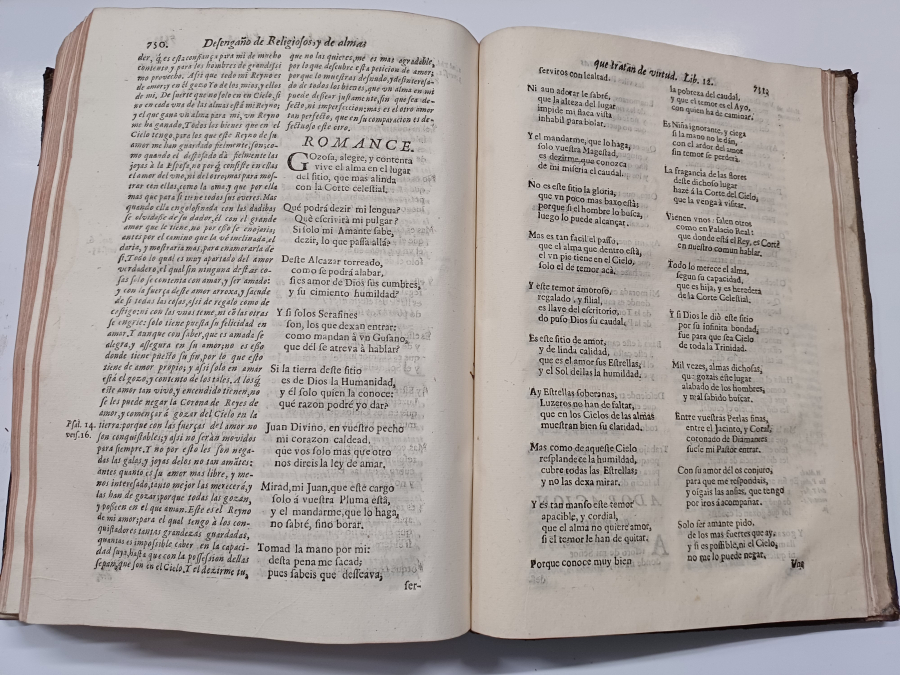 750. Desengaño de Religiosos, y de almas
der, q̃ es esta confiança para mi de mucho
contento, y para los hombres de grandissi
mo provecho. Assi que todo mi Reyno es
de amor, y el gozo To de los mios, y ellos
de mi, De suerte que no solo en el Cielo, si
no en cada vna de las almas està mi Reyno;
y el que gana vn alma para mi, vn Reyno
me ha ganado. Todos los bienes que en el
Cielo tengo, para los que este Reyno de su
amor me han guardado fielmente son; co-
mo quando el desposado dà fielmente las
joyas à la Esposa, no porq̃ consiste en ellas
el amor del vno, ni del otro; mas para mos-
trar con ellas, como la ama, y que por ella
mas que para si tiene todos sus averes. Mas
quando ella engolosinada con las dadibas
se olvidasse de su dador, èl con el grande
amor que le tiene, no por esso se enojaria;
antes por el camino que la vè inclinada, el
daria, y mostraria mas, para enamorarla de
si. Todo lo qual es muy apartado del amor
verdadero, el qual sin ninguna de estas co-
sas solo se contenta con amar, y ser amado:
y con la fuerça deste amor arroxa, y sacude
de si todas las cosas, assi de regalo como de
castigo; ni con las vnas teme, ni cõ las otras
se engrie: solo tiene puesta su felicidad en
amar. Y aunque con saber, que es amado se
alegra, y assegura en su amor; no es esso
donde tiene puesto su fin, por lo que esto
tiene de amor propio; y assi solo en amar
està el gozo, y contento de los tales. A los q̃
este amor tan vivo, y encendido tienen, no
se les puede negar la Corona de Reyes de
amor, y començar à gozar del Cielo en la
Psal. 14.
vers. 16.
tierra: porque con las fuerças del amor no
son conquistobles; y assi no seràn movidos
para siempre. Y no por esto les son nega-
das las galas, y joyas de los no tan amãtes;
antes quanto es su amor mas libre, y me-
nos interesado, tanto mejor las mereceràn, y
las han de gozar; porque todas las gozan,
y posseen en el que aman. Este es el Reyno
de mi amor; para el qual tengo à los con-
quistadores tantas grandezas guardadas,
quantas es impossible caber en la capaci-
dad suya, hasta que con la possession dellas
sepan, que son en el Cielo. Y el dezirme tu,
que no las quieres, me es mas agradable,
por lo que descubre esta peticion de amor;
porque lo muestras desnudo, y desinteresa-
do de todos los bienes, que vn alma en mi
puede dessear justamente, sin que sea de-
fecto, ni imperfeccion; mas es el otro amor
tan perfecto, que en su comparacion es de-
fectuoso este otro.
ROMANCE.
GOzosa, alegre, y contenta
vive el alma en el lugar
del sitio, que mas alinda
con la Corte celestial.
Què podrà dezir mi lengua?
Què escrivirà mi pulgar?
Si solo mi Amante sabe,
dezir, lo que passa allà?
Deste Alcazar torreado,
como se podrà alabar,
si es amor de Dios sus cumbres,
y su cimiento humildad?
Y si solos Serafines
son, los que dexan entrar:
como mandan à vn Gusano,
que dèl se atreva à hablar?
Si la tierra deste sitio
es de Dios la Humanidad,
y èl solo quien la conoce:
què razon podrè yo dar?
Juan Divino, en vuestro pecho
mi corazon caldead,
que vos solo mas que otro
nos direis la ley de amar.
Mirad, mi Juan, que este cargo
solo à vuestra Pluma està,
y el mandarme, que lo haga,
no sabrè, sino borar.
Tomad la mano por mi:
desta pena me sacad;
pues sabeis que desseava,
ser-
que tratan de virtud. Lib. 12. 751
serviros con lealtad.
Ni aun adorar le sabrè,
que la alteza del lugar
impide mi flaca vista
inhabil para bolar.
Y el mandarme, que lo haga,
solo vuestra Magestad,
es dezirme, que conozca
de mi miseria el caudal.
No es este sitio la gloria,
que vn poco mas baxo està;
porque si el hombre lo busca,
luego lo puede alcançar.
Mas es tan facil el passo,
que el alma que dentro està,
el vn pie tiene en el Cielo,
solo el de temor acà.
Y este temor amoroso,
regalado, y filial,
es llave del escritorio,
do puso Dios su caudal.
Es este sitio de amor,
y de linda calidad,
que es el amor sus Estrellas,
y el Sol dellas la humildad.
Ay Estrellas soberanas,
Luzeros no han de faltar,
que en los Cielos de las almas
muestran bien su claridad.
Mas como de aqueste Cielo
resplandece la humildad,
cubre todas las Estrellas;
y no las dexa mirar.
Y es tan manso este temor
apacible, y cordial,
que el alma no quiere amor,
si el temor le han de quitar.
Porque conoce muy bien
la pobreza del caudal,
y que el temor es el Ayo,
con quien ha de caminar.
Es Niña ignorante, y ciega
si la mano no le dàn,
con el ardor del amor
sin temor se perderà.
La fragancia de las flores
deste dichoso lugar
haze à la Corte del Cielo,
que la venga à visitar.
Vienen vnos: salen otros
como en Palacio Real:
que donde està el Rey, es Corte
en nuestro comun hablar.
Todo lo merece el alma,
segun su capacidad,
que es hija, y es heredera
de la Corte Celestial.
Y si Dios le diò este sitio
por su infinita bondad,
fue para que sea Cielo
de toda la Trinidad.
Mil vezes, almas dichosas,
que gozais este lugar
alabado de los hombres,
y mal sabido buscar.
Entre vuestras Perlas finas,
entre el Jacinto, y Coral,
coronado de Diamantes
suele mi Pastor entrar.
Con su amor del os conjuro,
para que me respondais,
y oigais las ansias, que tengo
por iros à acompañar.
Solo ser amante pido,
de los mas fuertes que ay;
y si es possible, ni el Cielo,
no me lo puede negar,
Vna